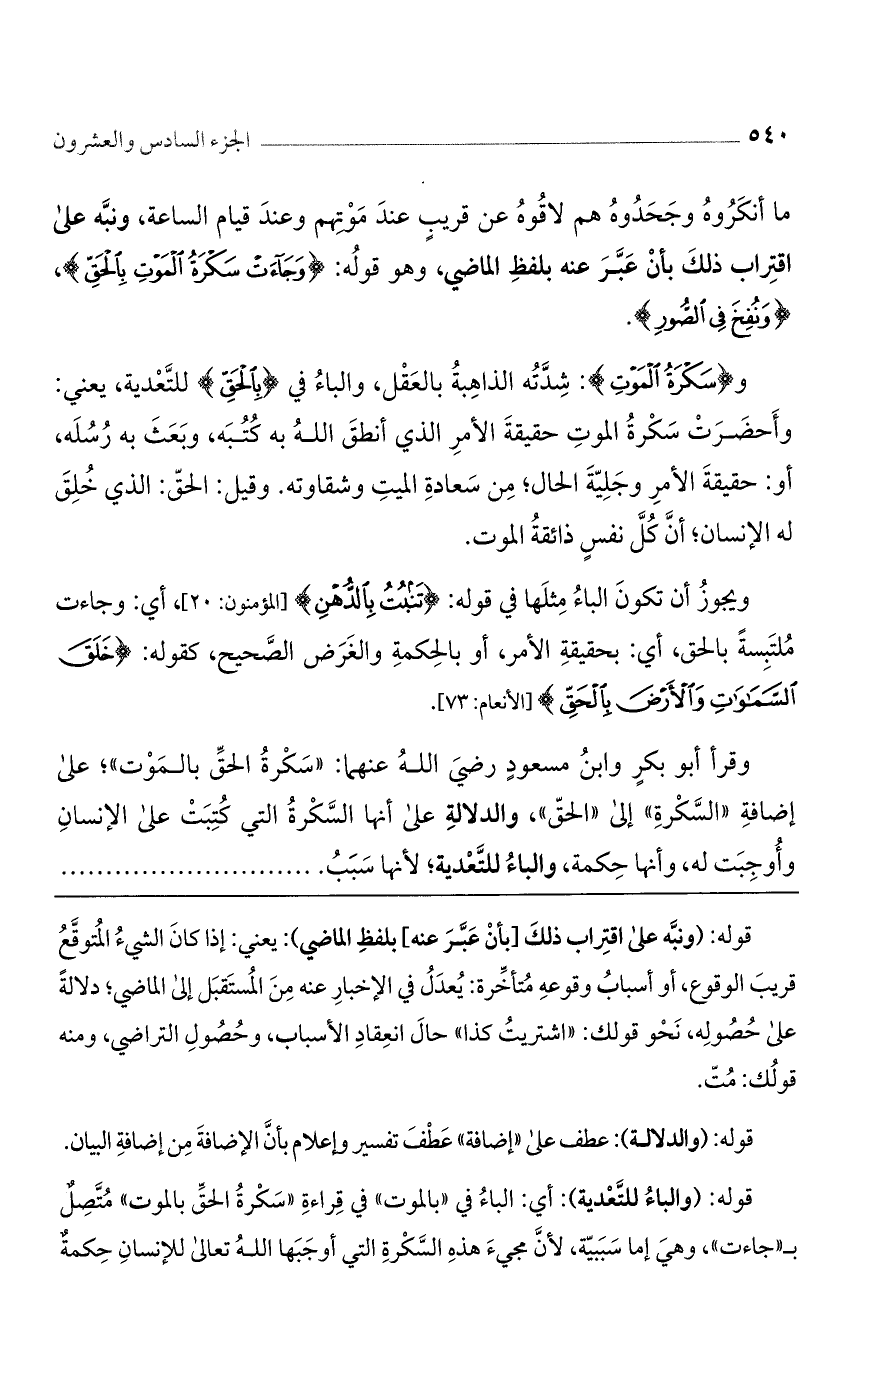 ٥٤٠ الجزء السادس والعشرون
ما أنكَرُوهُ وجَحَدُوهُ هم لاقُوهُ عن قريبٍ عندَ مَوْتِهم وعندَ قيام الساعة، ونبَّه علىٰ
اقتِراب ذلكَ بأنْ عَبَّرَ عنه بلفظِ الماضي، وهو قولُه: ﴿وَجَآءَتْ سَكْرَةُ ٱلْمَوْتِ بِٱلْحَقِّ﴾،
﴿وَنُفِخَ فِى ٱلصُّورِ﴾.
و﴿سَكْرَةُ ٱلْمَوْتِ﴾: شِدَّتُه الذاهِبةُ بالعَقْل، والباءُ في ﴿بِٱلْحَقِّ﴾ للتَّعْدية، يعني:
وأَحضَرَتْ سَكْرةُ الموتِ حقيقةَ الأمرِ الذي أنطقَ اللهُ به كُتُبَه، وبَعَثَ به رُسُلَه،
أو: حقيقةَ الأمرِ وجَلِيّةَ الحال؛ مِن سَعادةِ الميتِ وشقاوته. وقيل: الحقّ: الذي خُلِقَ
له الإنسان؛ أنَّ كُلَّ نفسٍ ذائقةُ الموت.
ويجوزُ أن تكونَ الباءُ مِثلَها في قوله: ﴿تَنۢبُتُ بِٱلدُّهْنِ﴾ [المؤمنون: ٢٠]، أي: وجاءت
مُلتَبِسةً بالحق، أي: بحقيقةِ الأمر، أو بالحِكمةِ والغَرَض الصَّحيح، كقوله: ﴿خَلَقَ
ٱلسَّمَٰوَٰتِ وَٱلْأَرْضَ بِٱلْحَقِّ﴾ [الأنعام: ٧٣].
وقرأ أبو بكرٍ وابنُ مسعودٍ رضيَ اللهُ عنهما: «سَكْرةُ الحقِّ بالـمَوْت»؛ علىٰ
إضافةِ «السَّكْرةِ» إلىٰ «الحقّ»، والدلالةِ علىٰ أنها السَّكْرةُ التي كُتِبَتْ علىٰ الإنسانِ
وأُوجِبَت له، وأنها حِكمة، والباءُ للتَّعْدية؛ لأنها سَبَبُ. ............................
قوله: (ونبَّه علىٰ اقتِراب ذلكَ [بأنْ عَبَّرَ عنه] بلفظِ الماضي): يعني: إذا كانَ الشيءُ المُتوقَّعُ
قريبَ الوقوع، أو أسبابُ وقوعهِ مُتأخِّرة: يُعدَلُ في الإخبارِ عنه مِنَ المُستَقبَل إلىٰ الماضي؛ دلالةً
علىٰ حُصُولِه، نَحْو قولك: «اشتريتُ كذا» حالَ انعِقادِ الأسباب، وحُصُولِ التراضي، ومنه
قولُك: مُتّ.
قوله: (والدلالـة): عطف علىٰ «إضافة» عَطْفَ تفسير وإعلام بأنَّ الإضافةَ مِن إضافةِ البيان.
قوله: (والباءُ للتَّعْدية): أي: الباءُ في «بالموت» في قِراءةِ «سَكْرةُ الحقِّ بالموت» مُتَّصِلٌ
بـ«جاءت»، وهيَ إما سَبَبيّة، لأنَّ مجيءَ هذهِ السَّكْرةِ التي أوجَبَها اللهُ تعالىٰ للإنسانِ حِكمةٌ